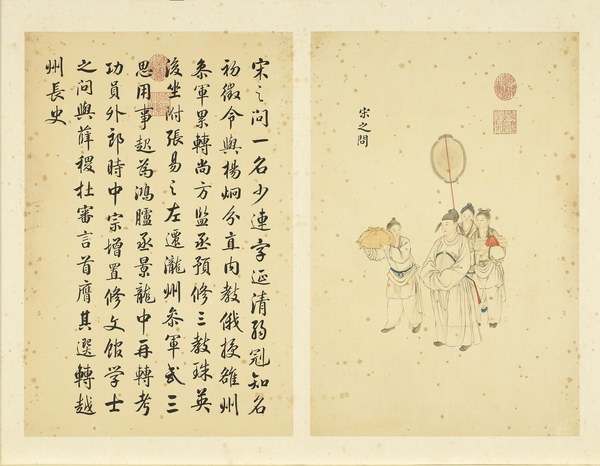 宋之問
宋之問一名少連字延清弱冠知名
初徵令與楊炯分直內教俄授雒州
叅軍累轉尚方監丞預修三教珠英
後坐附張易之左遷瀧州叅軍武三
思用事起為鴻臚丞景龍中再轉考
功員外郎時中宗增置修文館学士
之問與薛稷杜審言首膺其選轉越
州長史